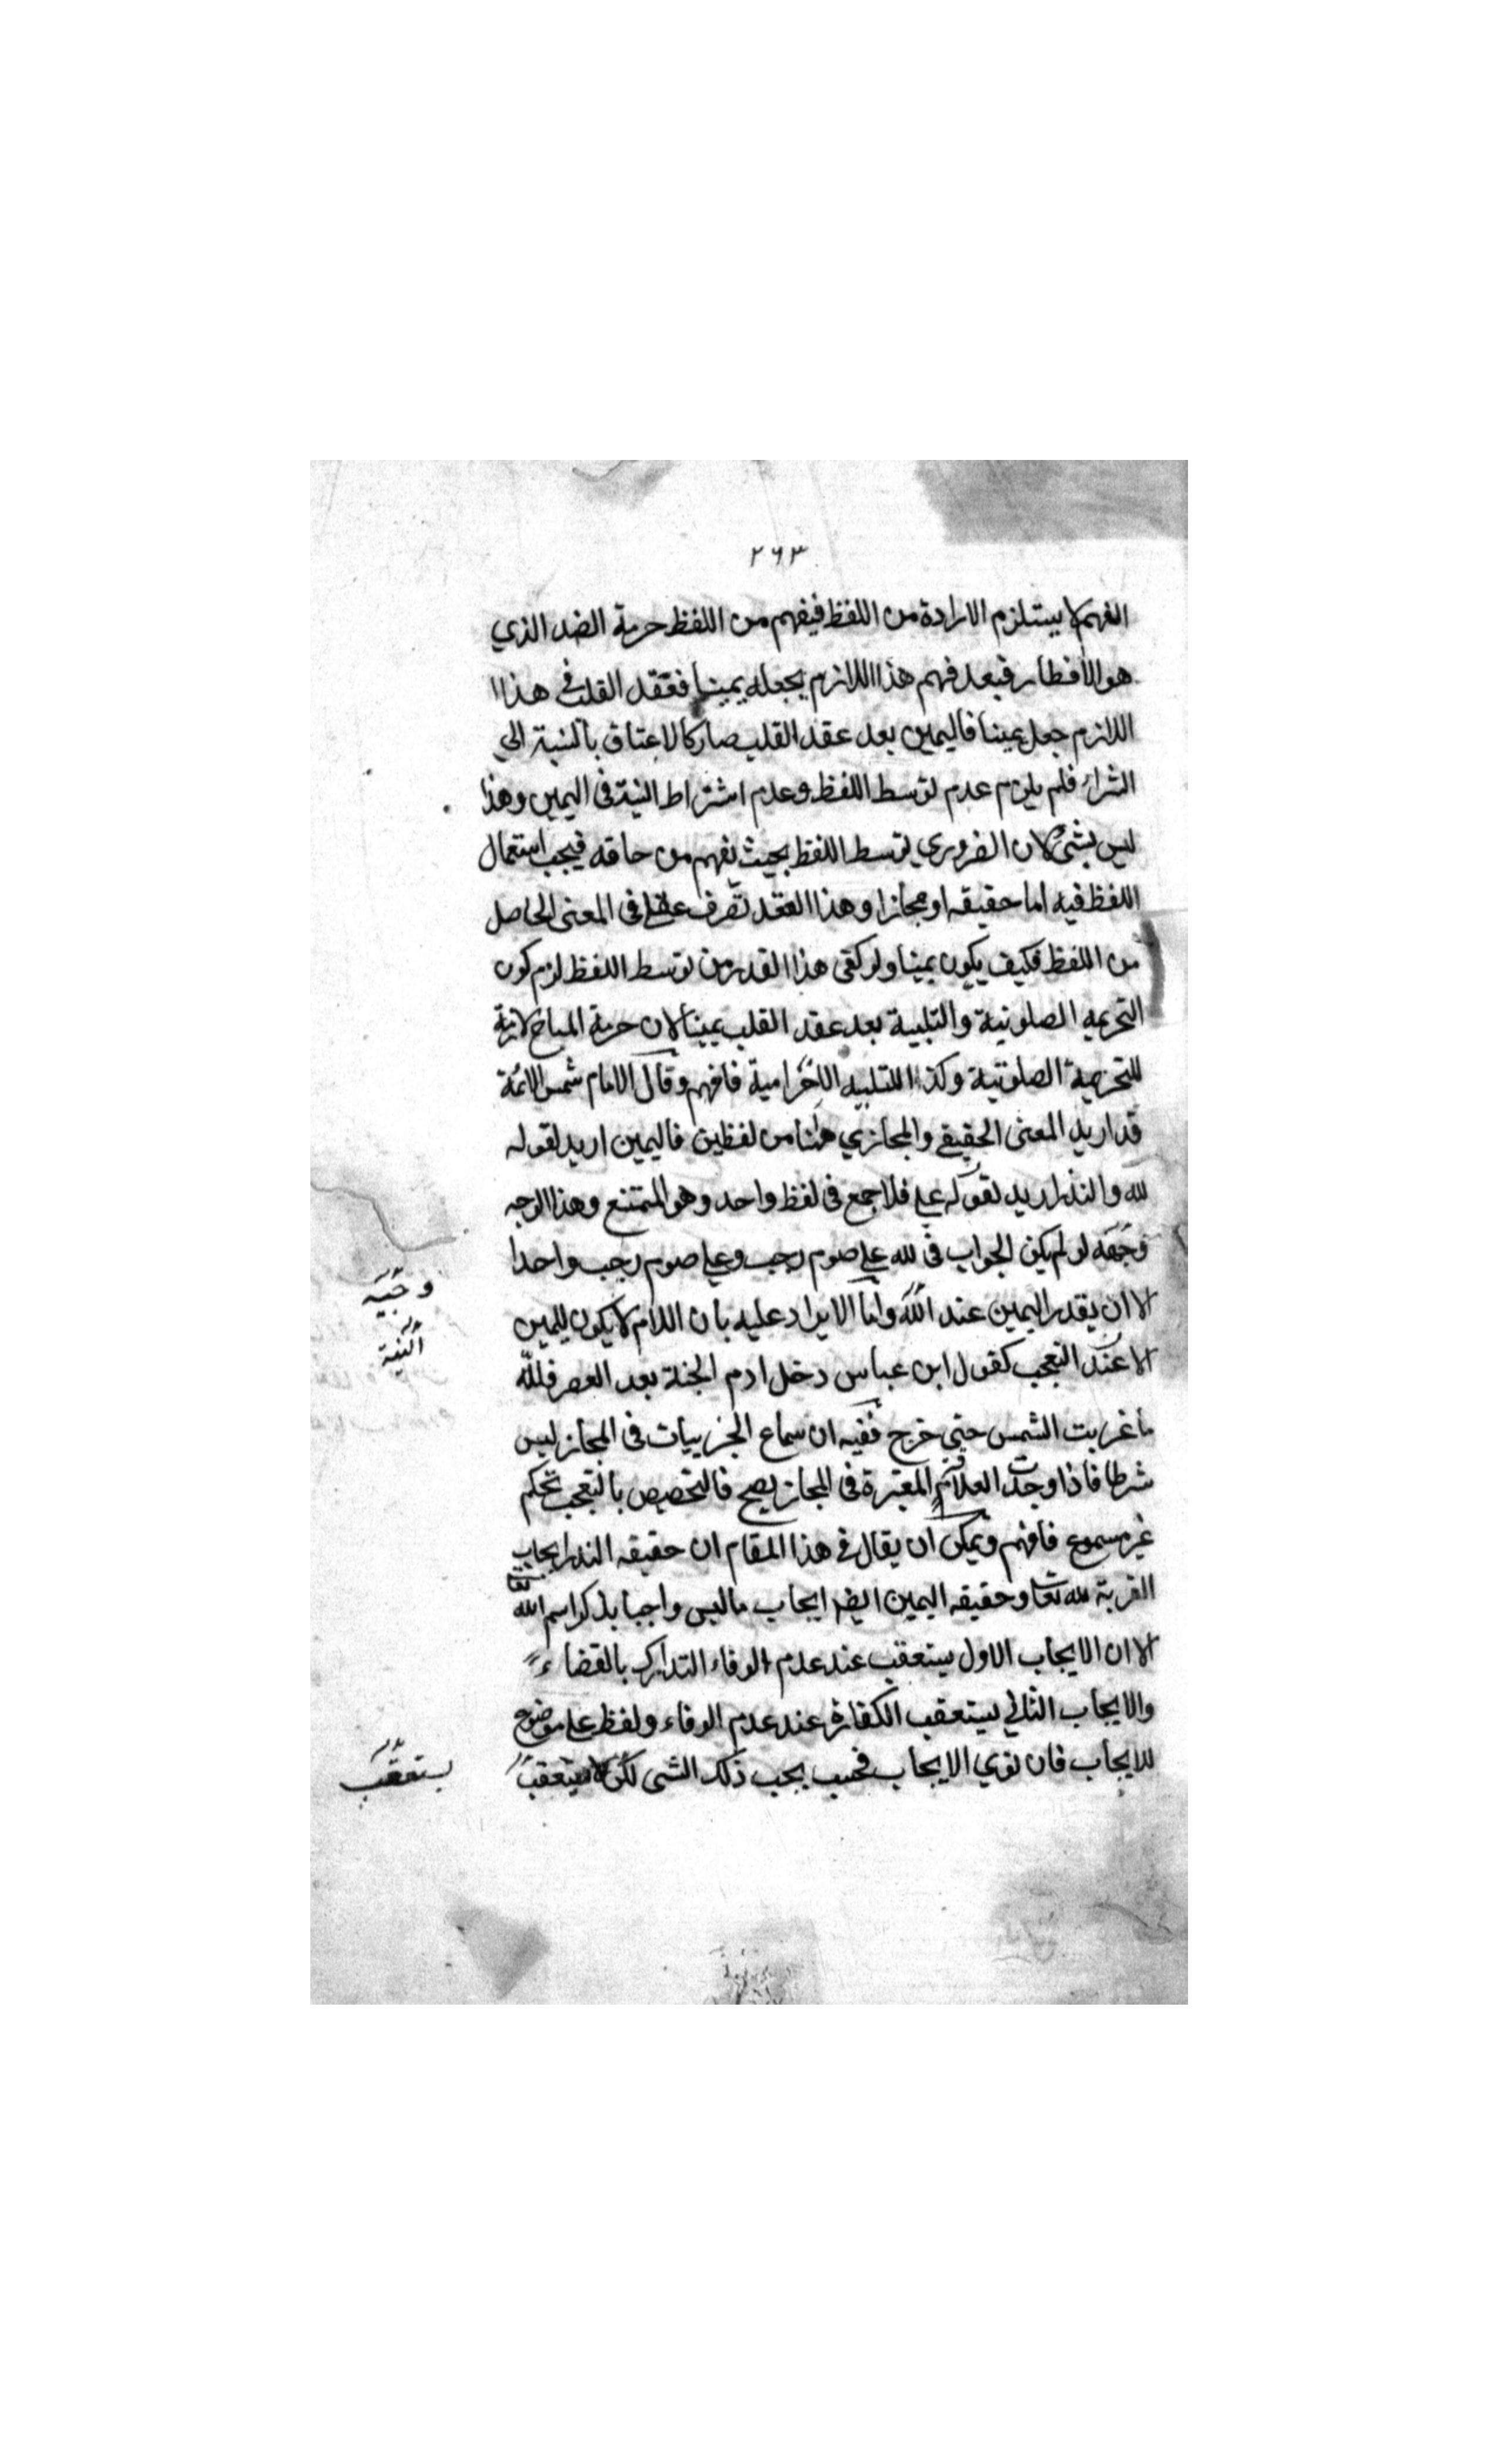 ٢٦٣
الفهم لا يستلزم الارادة من اللفظ فيفهم من اللفظ حرمة الضد الذي
هو الافطار فبعد فهم هذا اللازم يجعله يمينا فعقد القلب في هذا
اللازم جعل يمينا فاليمين بعد عقد القلب صار كالاعتاق بالنسبة الى
الشراء فلم يلزم عدم توسط اللفظ وعدم اشتراط النية في اليمين وهذا
ليس بشئ لان الضروري توسط اللفظ بحيث يفهم من حاقه فيجب استعمال
اللفظ فيه اما حقيقه او مجازا وهذا العقد تصرف عقلي في المعنى الحاصل
من اللفظ فكيف يكون يمينا ولو كفى هذا القدر من توسط اللفظ لزم كون
التحريمه الصلوتية والتلبية بعد عقد القلب يمينا لان حرمة المباح لازمة
للتحريمة الصلوتية وكذا للتلبيه الاحرامية فافهم وقال الامام شمس الائمة
قد اريد المعنى الحقيقي والمجازي ههنا من لفظين فاليمين اريد لقوله
لله والنذر اريد لقوله علي فلا جمع في لفظ واحد وهو الممتنع وهذا الوجه
وجهه لو لم يكن الجواب في لله علي صوم رجب وعلي صوم رجب واحدا
الا ان يقدر اليمين عند وانا الايراد عليه بان اللام لا يكون لليمين
الا عند التعجب كقول ابن عباس دخل ادم الجنة بعد العصر فلله
ما غربت الشمس حتى خرج ففيه ان سماع الجزييات في المجاز ليس
شرطا فاذا وجدت العلاقة المعتبرة في المجاز يصح فالتخصيص بالتعجب تحكم
غير مسموع فافهم ويمكن ان يقال في هذا المقام ان حقيقه النذر ايجاب
القربة لله تعا وحقيقه اليمين ايضا ايجاب ما ليس واجبا بذكر اسم الله تعا
الا ان الايجاب الاول يستعقب عند عدم الوفاء التدارك بالقضاء
والايجاب الثاني يستعقب الكفارة عند عدم الوفاء ولفظ علي موضوع
للايجاب فان نوي الايجاب فحسب يجب ذلك الشى لكن يستعقب
وجيه
النية
يستعقب